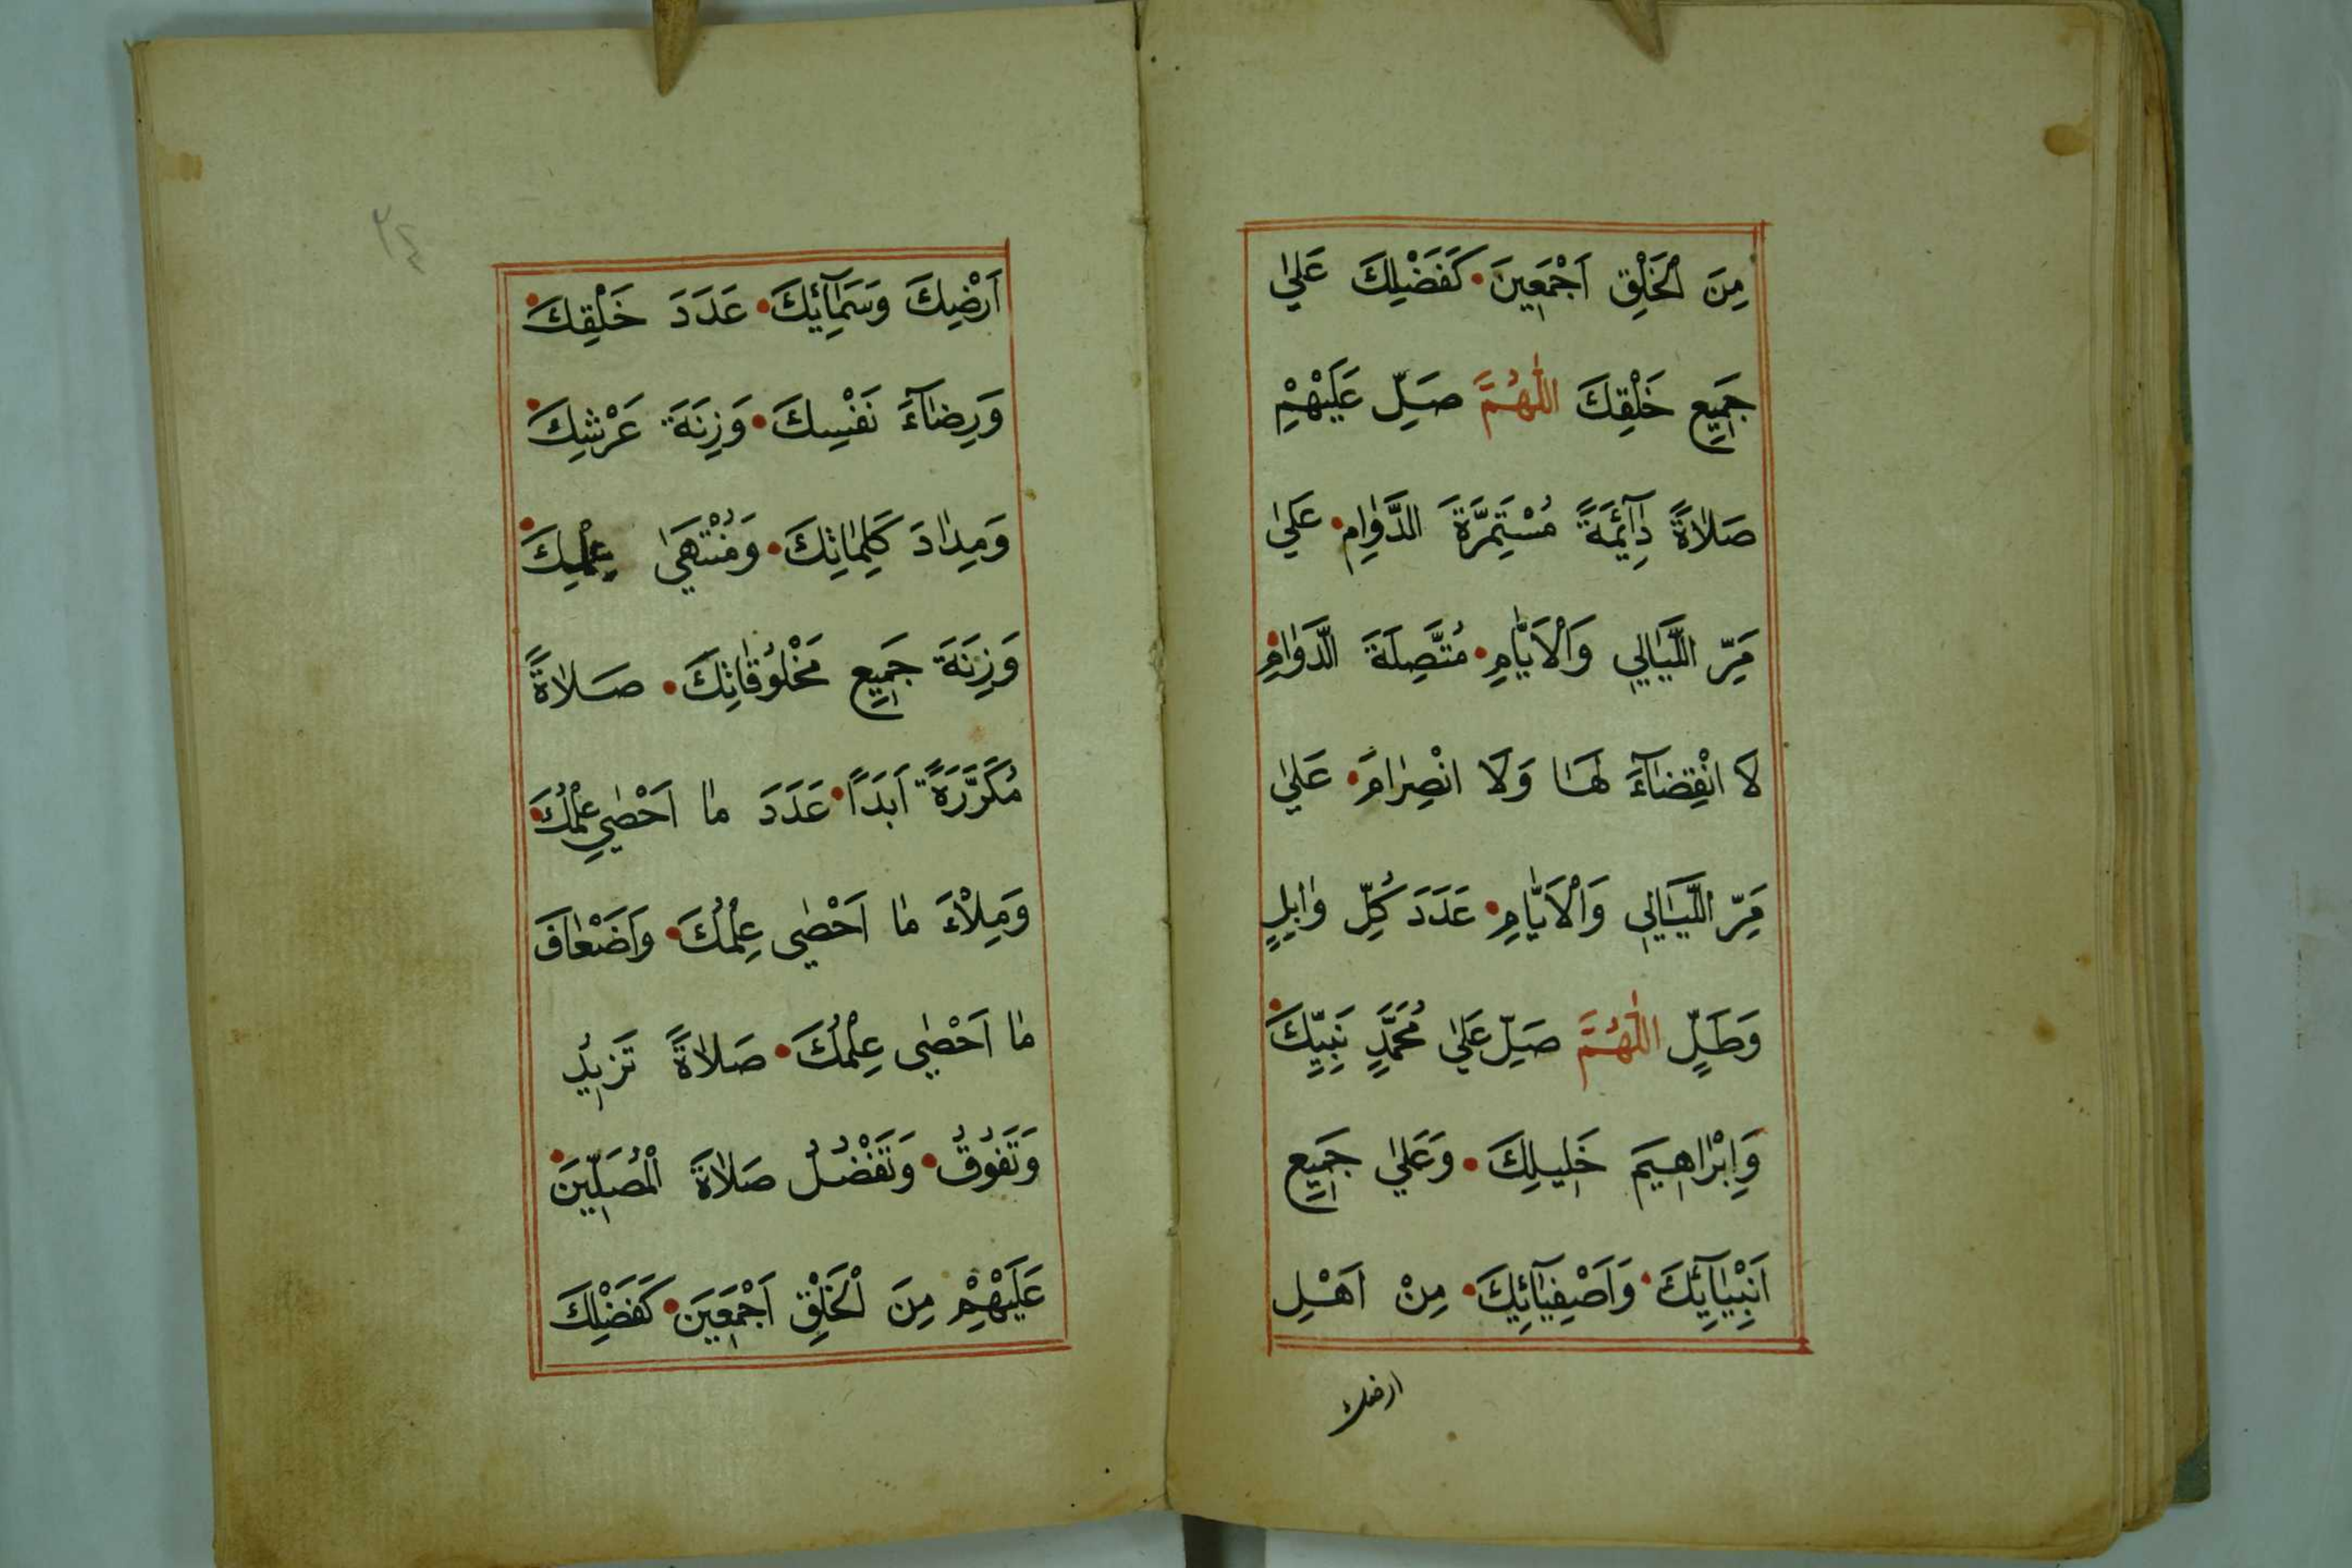 مِنَ الْخَلْقِ اَجْمَعِينَ • كَفَضْلِكَ عَلٰي
جَمِيعِ خَلْقِكَ اَللّٰهُمَّ صَلِّ عَلَيْهِمْ
صَلَاةً دَآئِمَةً مُسْتَمِرَّةَ الدَّوَامِ • عَلٰي
مَرِّ اللَّيَالِي وَالْاَيَّامِ • مُتَّصِلَةَ الدَّوَامِ •
لَا انْقِضَآءَ لَهَا وَلَا انْصِرَامَ • عَلٰي
مَرِّ اللَّيَالِي وَالْاَيَّامِ • عَدَدَ كُلِّ وَابِلٍ
وَطَلٍّ اَللّٰهُمَّ صَلِّ عَلٰي مُحَمَّدٍ نَبِيِّكَ •
وَاِبْرَاهِيمَ خَلِيلِكَ • وَعَلٰي جَمِيعِ
اَنْبِيَآئِكَ • وَاَصْفِيَآئِكَ • مِنْ اَهْلِ
ارضك
٢٤
اَرْضِكَ وَسَمَآئِكَ • عَدَدَ خَلْقِكَ •
وَرِضَآءَ نَفْسِكَ • وَزِنَةَ عَرْشِكَ •
وَمِدَادَ كَلِمَاتِكَ • وَمُنْتَهٰي عِلْمِكَ •
وَزِنَةَ جَمِيعِ مَخْلُوقَاتِكَ • صَلَاةً
مُكَرَّرَةً اَبَدًا • عَدَدَ مَا اَحْصٰي عِلْمُكَ •
وَمِلْاَءَ مَا اَحْصٰي عِلْمُكَ • وَاَضْعَافَ
مَا اَحْصٰي عِلْمُكَ • صَلَاةً تَزِيدُ
وَتَفُوقُ • وَتَفْضُلُ صَلَاةَ الْمُصَلِّينَ •
عَلَيْهِمْ مِنَ الْخَلْقِ اَجْمَعِينَ • كَفَضْلِكَ